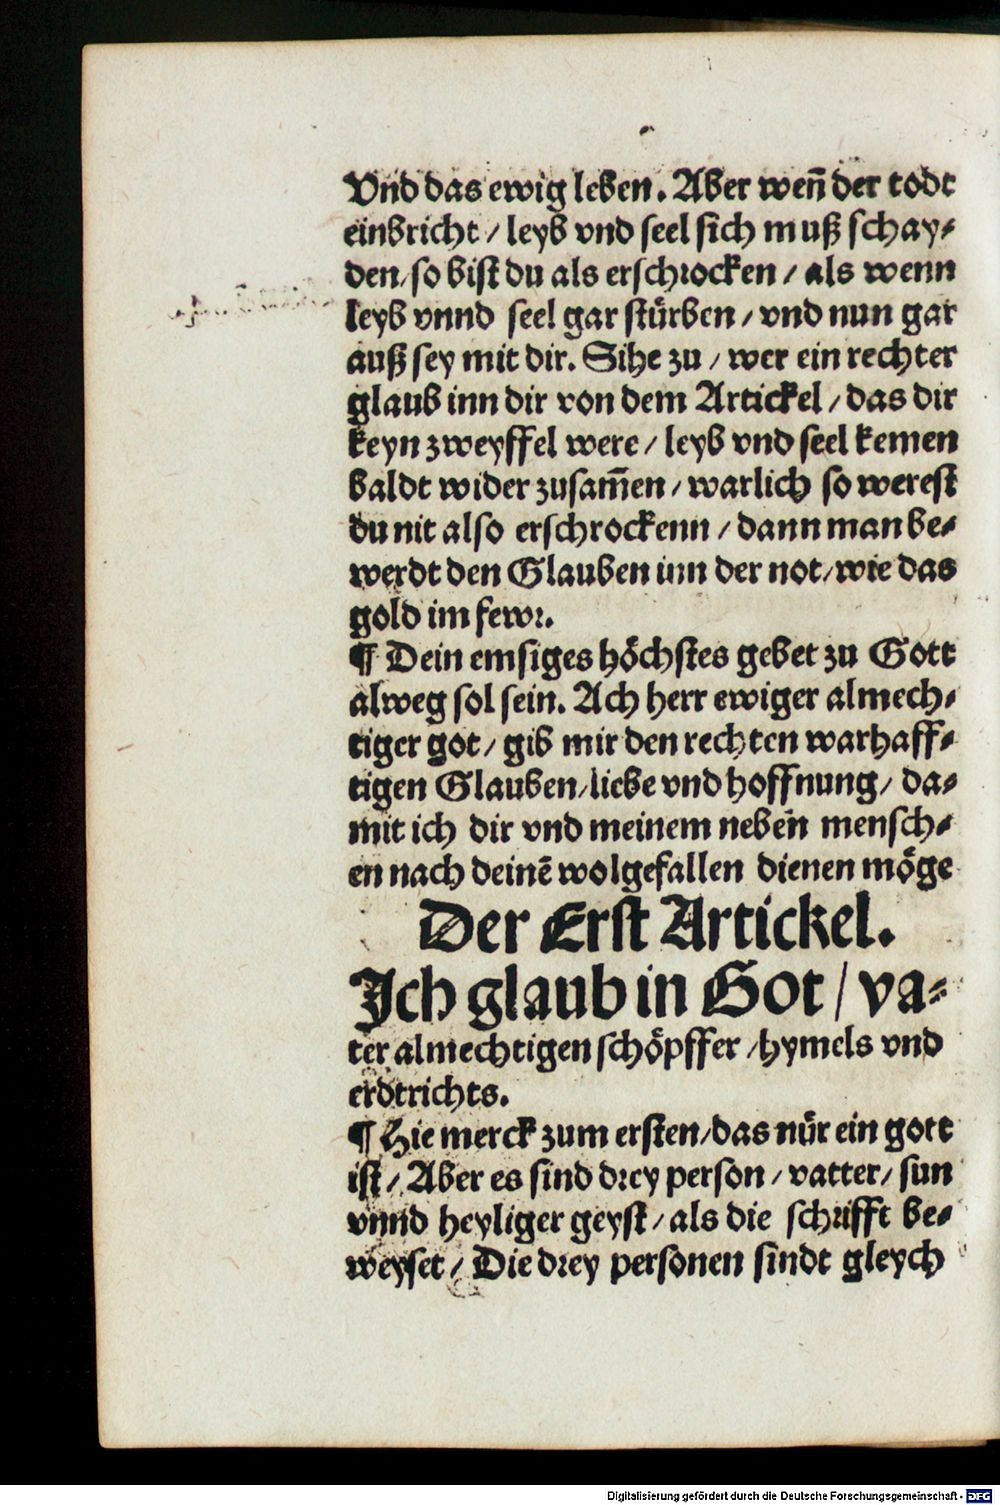 Vnd das ewig leben. Aber weñ der todt
einbricht / leyb vnd seel sich muß schay⸗
den / so bist du als erschrocken / als wenn
leyb vnnd seel gar stürben / vnd nun gar
auß sey mit dir. Sihe zu / wer ein rechter
glaub inn dir von dem Artickel / das dir
keyn zweyffel were / leyb vnd seel kemen
baldt wider zusam̃en / warlich so werest
du nit also erschrockenn / dann man be⸗
werdt den Glauben inn der not / wie das
gold im fewr.
¶ Dein emsiges höchstes gebet zu Gott
alweg sol sein. Ach herr ewiger almech⸗
tiger got / gib mir den rechten warhaff⸗
tigen Glauben / liebe vnd hoffnung / da⸗
mit ich dir vnd meinem neben mensch⸗
en nach deinẽ wolgefallen dienen möge
Der Erst Artickel.
Ich glaub in Got / va⸗
ter almechtigen schöpffer / hymels vnd
erdtrichts.
¶ Hie merck zum ersten / das nür ein gott
ist / Aber es sind drey person / vatter / sun
vnnd heyliger geyst / als die schrifft be⸗
weyset / Die drey personen sindt gleych
Digitalisierung gefördert durch die Deutsche Forschungsgemeinschaft - DFG